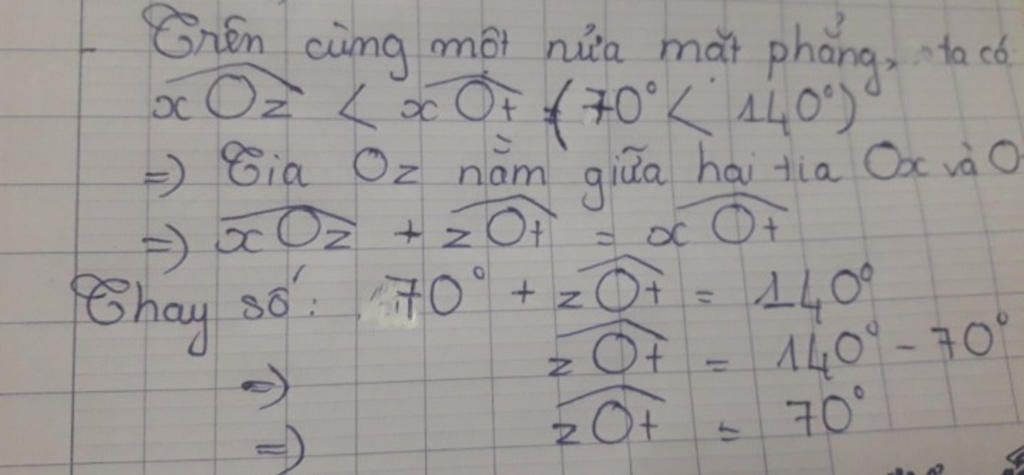 - Trên cùng một nửa mặt phẳng, ta có
xOz < xOt (70° < 140°)
=) Tia Oz nằm giữa hai tia Ox và O
=) xOz + zOt = xOt
Thay số: 70° + zOt = 140°
=) zOt = 140° - 70°
=) zOt = 70°